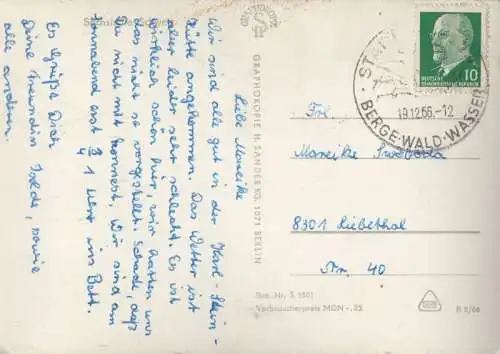 Sächsische Schweiz
Liebe Mareike
Wir sind alle gut in der Karl-Stein-
hütte angekommen. Das Wetter ist
aber leider sehr schlecht. Es ist
wirklich schön hier, wir hatten uns
das nicht so vorgestellt. Schade, daß
Du nicht mit konntest. Wir sind am
Sonnabend erst 3/4 1 Uhr ins Bett.
Es grüßt Dich
Deine Freundin Isolde, sowie
alle andern.
GRAPHOKOPIE
GRAPHOKOPIE H. SANDER KG. 1071 BERLIN
10
DEUTSCHE
DEMOKRATISCHE REPUBLIK
STADT
19.12.66.-12
BERGE-WALD-WASSER
Frl.
Mareike
8301 Liebethal
Nr. 40
Best.-Nr. S 1801
Verbraucherpreis MDN -,25
R 2/66